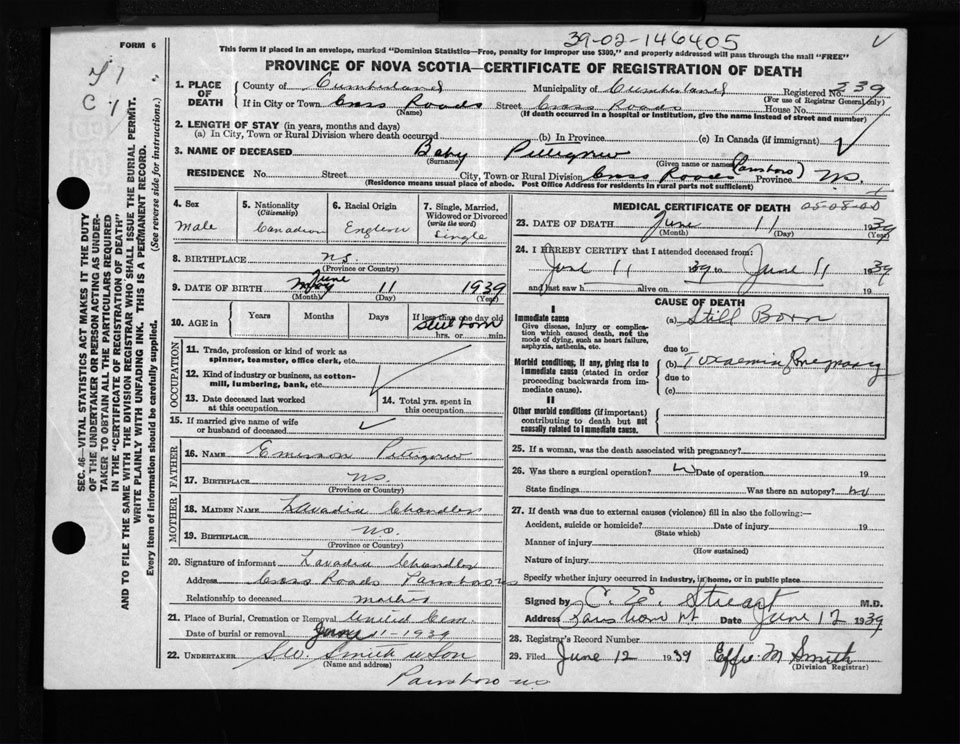 39-02-146405
FORM 6
This form if placed in an envelope, marked "Dominion Statistics—Free, penalty for improper use $300," and properly addressed will pass through the mail "FREE"
PROVINCE OF NOVA SCOTIA—CERTIFICATE OF REGISTRATION OF DEATH
SEC. 46—VITAL STATISTICS ACT MAKES IT THE DUTY
OF THE UNDERTAKER OR PERSON ACTING AS UNDER-
TAKER TO OBTAIN ALL THE PARTICULARS REQUIRED
IN THE "CERTIFICATE OF REGISTRATION OF DEATH"
AND TO FILE THE SAME WITH THE DIVISION REGISTRAR WHO SHALL ISSUE THE BURIAL PERMIT.
WRITE PLAINLY WITH UNFADING INK. THIS IS A PERMANENT RECORD.
Every item of information should be carefully supplied. (See reverse side for instructions.)
1. PLACE OF DEATH County of Cumberland Municipality of Cumberland Registered No. 339
(For use of Registrar General only)
If in City or Town Cross Roads Street Cross Roads House No.
(Name) (If death occurred in a hospital or institution, give the name instead of street and number)
2. LENGTH OF STAY (in years, months and days)
(a) In City, Town or Rural Division where death occurred (b) In Province (c) In Canada (if immigrant)
3. NAME OF DECEASED Baby Pettigrew
(Surname) (Given name or names)
RESIDENCE No. Street City, Town or Rural Division Cross Roads (Parrsboro) Province N.S.
(Residence means usual place of abode. Post Office Address for residents in rural parts not sufficient)
4. Sex Male
5. Nationality (Citizenship) Canadian
6. Racial Origin English
7. Single, Married, Widowed or Divorced (write the word) Single
8. BIRTHPLACE N.S.
(Province or Country)
9. DATE OF BIRTH May June 11 1939
(Month) (Day) (Year)
10. AGE in Years Months Days If less than one day old
Stillborn
hrs. or min.
OCCUPATION
11. Trade, profession or kind of work as spinner, teamster, office clerk, etc.
12. Kind of industry or business, as cotton-mill, lumbering, bank, etc.
13. Date deceased last worked at this occupation
14. Total yrs. spent in this occupation
15. If married give name of wife or husband of deceased
FATHER
16. NAME Emerson Pettigrew
17. BIRTHPLACE N.S.
(Province or Country)
MOTHER
18. MAIDEN NAME Lavadia Chandler
19. BIRTHPLACE N.S.
(Province or Country)
20. Signature of informant Lavadia Chandler
Address Cross Roads Parrsboro NS
Relationship to deceased mother
21. Place of Burial, Cremation or Removal United Cem.
Date of burial or removal June 11-1939
22. UNDERTAKER S.W. Smith & Son
(Name and address)
Parrsboro NS
MEDICAL CERTIFICATE OF DEATH
23. DATE OF DEATH June 11 1939
(Month) (Day) (Year)
24. I HEREBY CERTIFY that I attended deceased from:
June 11 1939 to June 11 1939
and last saw h alive on 19
CAUSE OF DEATH
I
Immediate cause
Give disease, injury or complication which caused death, not the mode of dying, such as heart failure, asphyxia, asthenia, etc.
(a) Still Born
due to
Morbid conditions, if any, giving rise to immediate cause (stated in order proceeding backwards from immediate cause).
(b) Toxaemia Pregnancy
due to
(c)
II
Other morbid conditions (if important) contributing to death but not causally related to immediate cause.
25. If a woman, was the death associated with pregnancy?
26. Was there a surgical operation? Date of operation 19
State findings Was there an autopsy? no
27. If death was due to external causes (violence) fill in also the following:—
Accident, suicide or homicide? Date of injury 19
(State which)
Manner of injury
(How sustained)
Nature of injury
Specify whether injury occurred in industry, in home, or in public place
Signed by C. E. Stuart M.D.
Address Parrsboro NS Date June 12 1939
28. Registrar's Record Number
29. Filed June 12 1939 Effie M Smith
(Division Registrar)